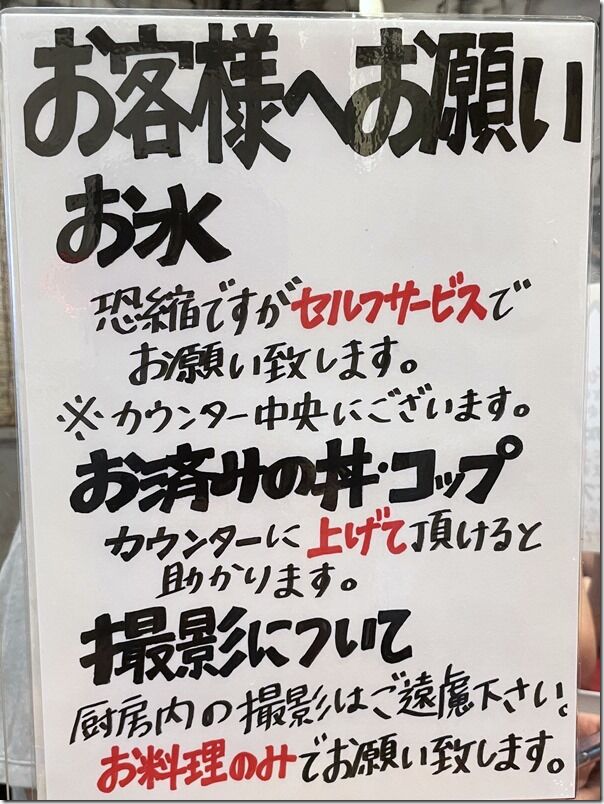 お客様へお願い
お水
恐縮ですがセルフサービスで
お願い致します。
※カウンター中央にございます。
お済みの丼・コップ
カウンターに上げて頂けると
助かります。
撮影について
厨房内の撮影はご遠慮下さい。
お料理のみでお願い致します。